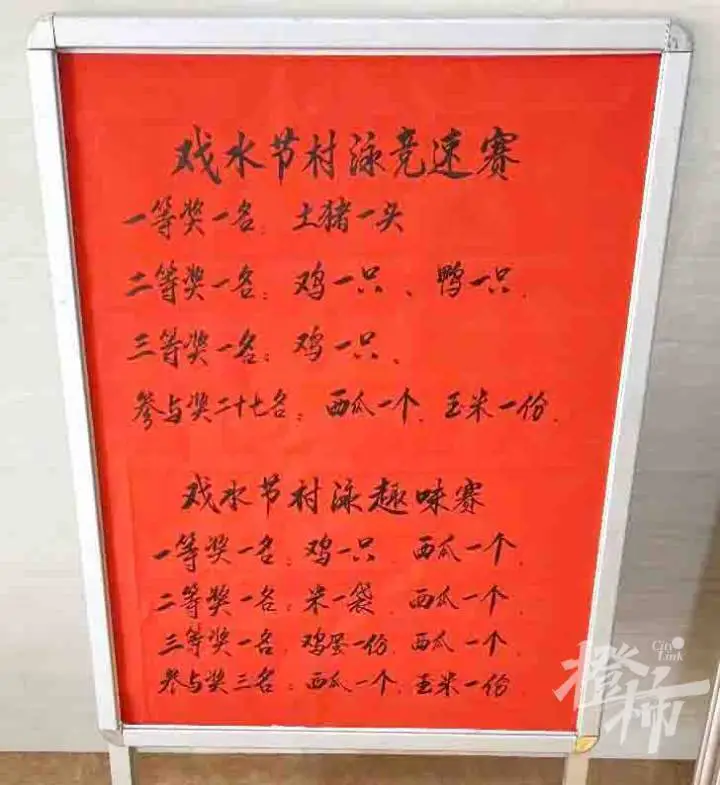 戏水节村泳竞速赛
一等奖一名：土猪一头
二等奖一名：鸡一只、鸭一只.
三等奖一名：鸡一只、
参与奖二十七名：西瓜一个.玉米一份.
戏水节村泳趣味赛
一等奖一名：鸡一只 西瓜一个.
二等奖一名：米一袋 西瓜一个.
三等奖一名.鸡蛋一份.西瓜一个.
参与奖三名：西瓜一个.玉米一份.
City Link
橙柿